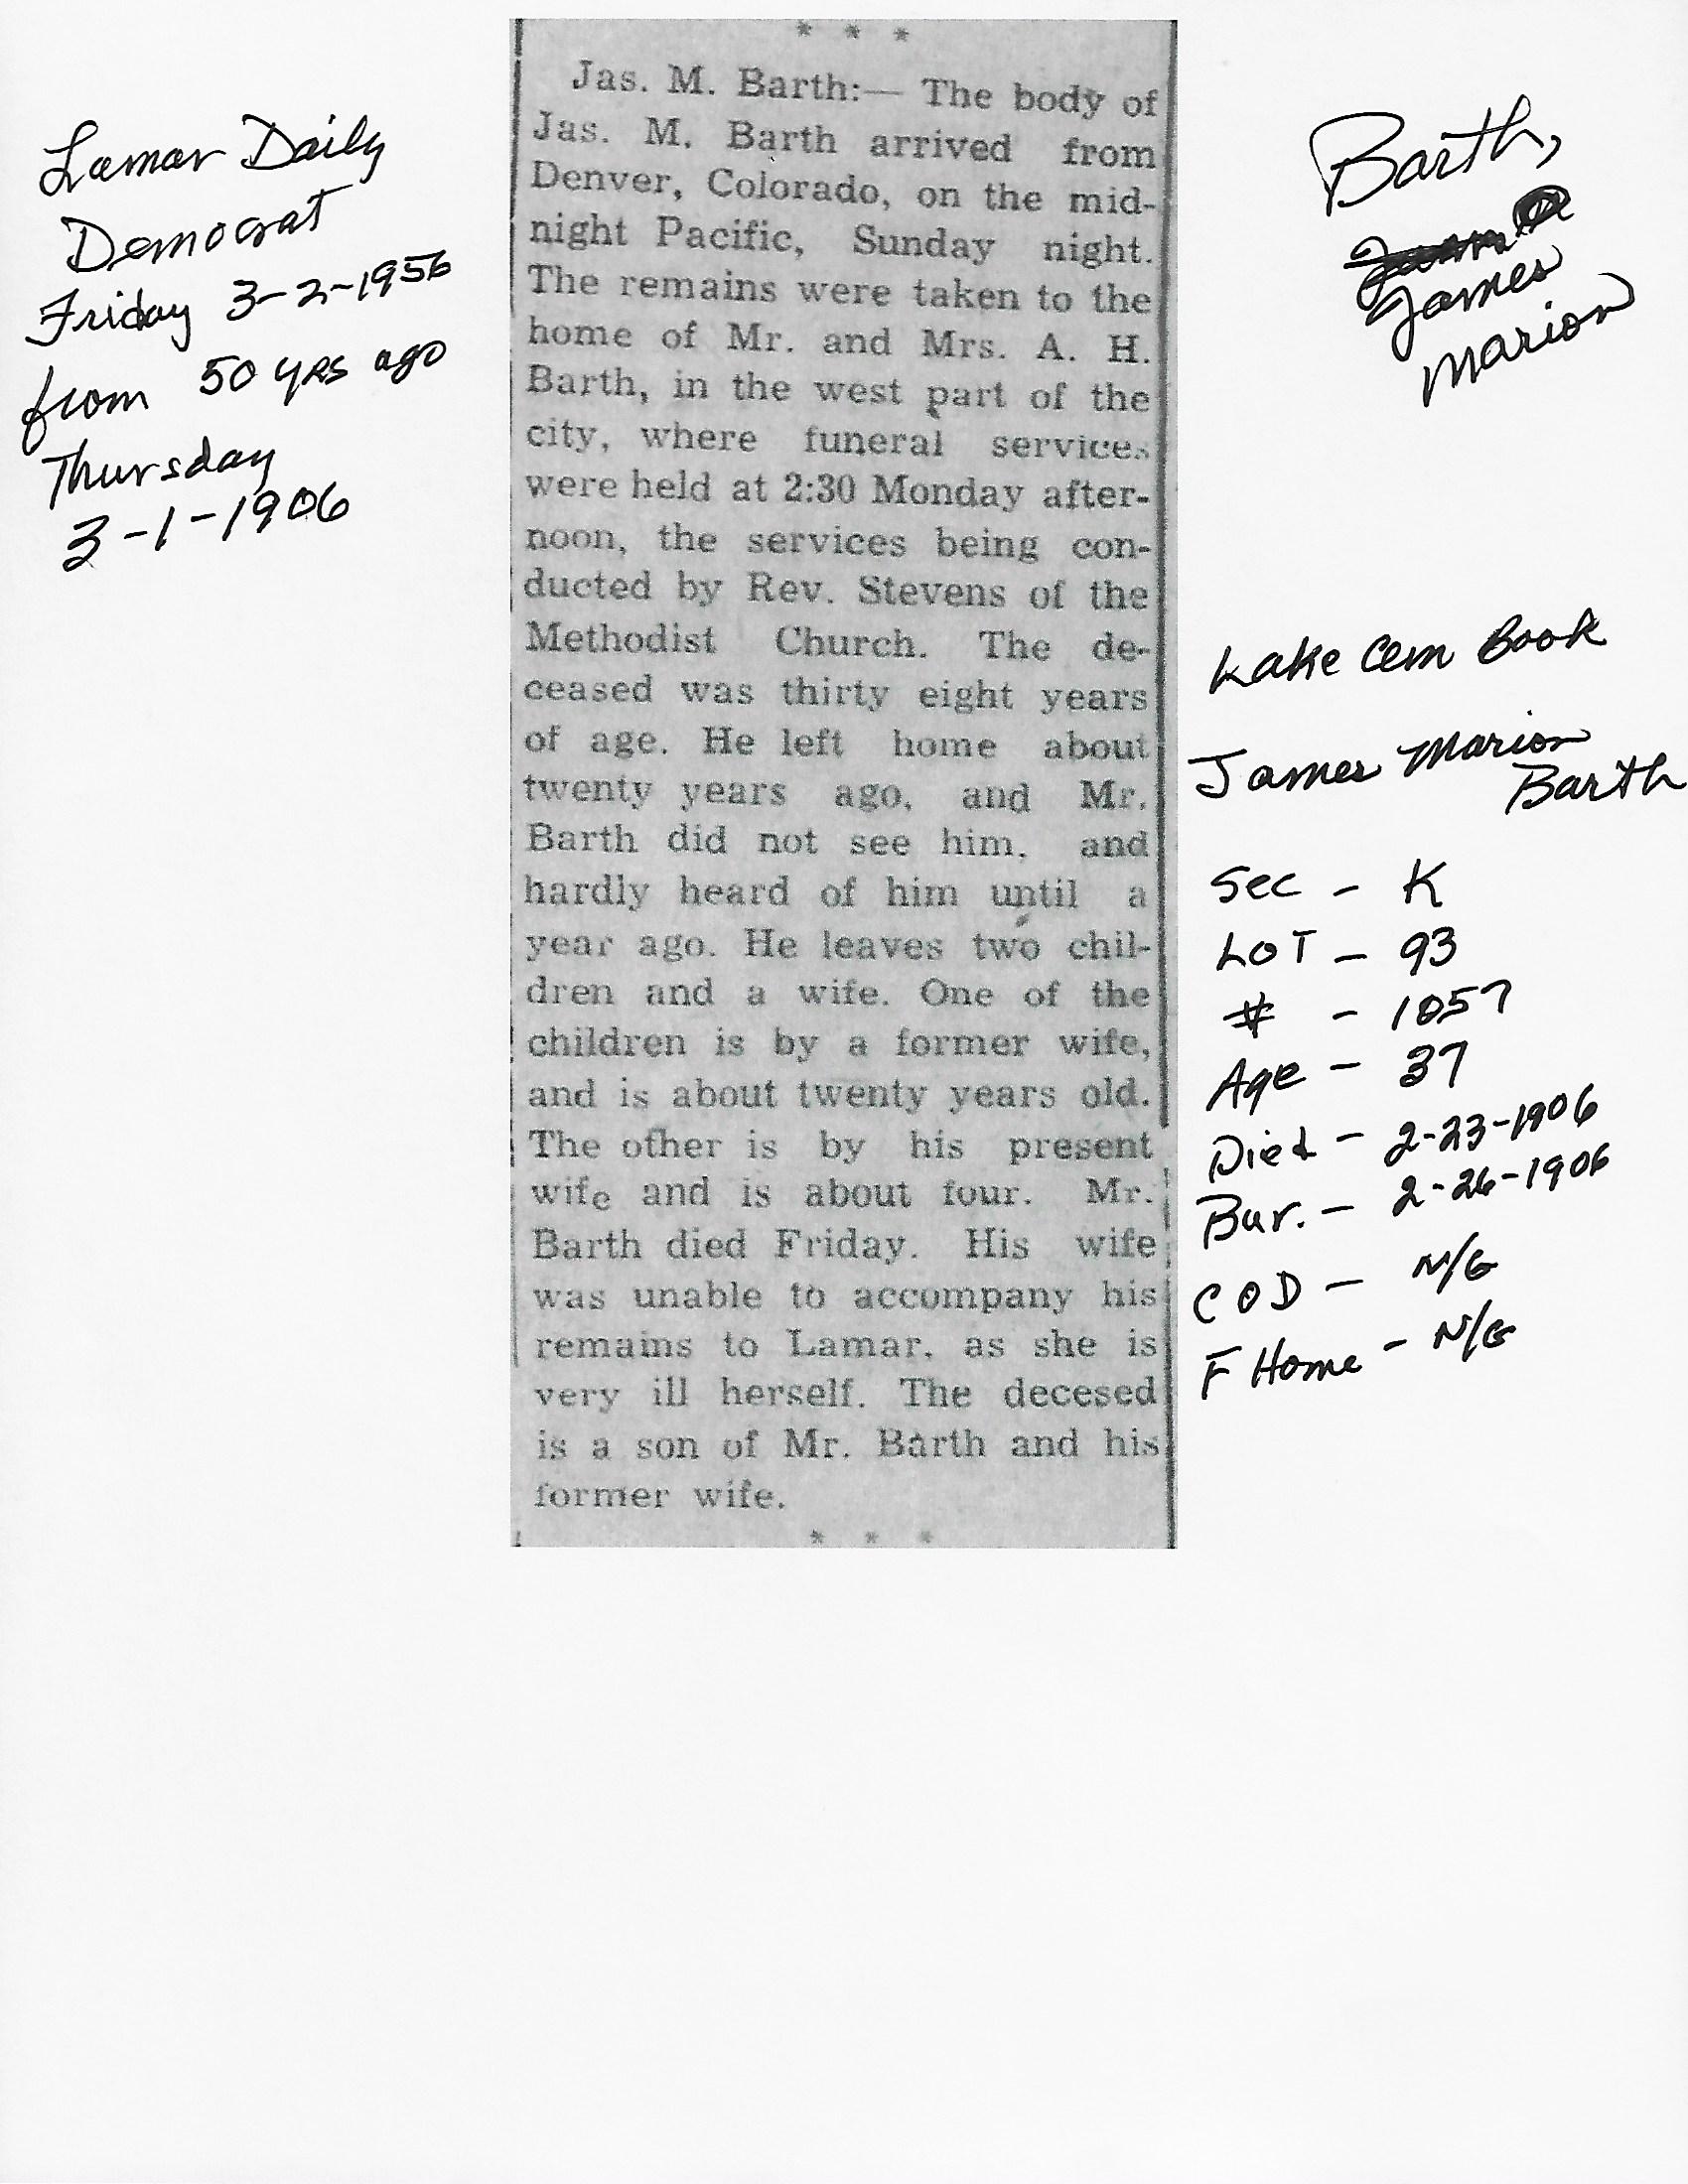 Lamar Daily
Democrat
Friday 3-2-1956
from 50 yrs ago
Thursday
3-1-1906
* * *
Jas. M. Barth:— The body of
Jas. M. Barth arrived from
Denver, Colorado, on the mid-
night Pacific, Sunday night.
The remains were taken to the
home of Mr. and Mrs. A. H.
Barth, in the west part of the
city, where funeral services
were held at 2:30 Monday after-
noon, the services being con-
ducted by Rev. Stevens of the
Methodist Church. The de-
ceased was thirty eight years
of age. He left home about
twenty years ago, and Mr.
Barth did not see him, and
hardly heard of him until a
year ago. He leaves two chil-
dren and a wife. One of the
children is by a former wife,
and is about twenty years old.
The other is by his present
wife and is about four. Mr.
Barth died Friday. His wife
was unable to accompany his
remains to Lamar, as she is
very ill herself. The decesed
is a son of Mr. Barth and his
former wife.
* * *
Barth,
James
Marion
Lake Cem Book
James Marion
Barth
Sec - K
LOT - 93
# - 1057
Age - 37
Died - 2-23-1906
Bur. - 2-26-1906
COD - N/G
F Home - N/G